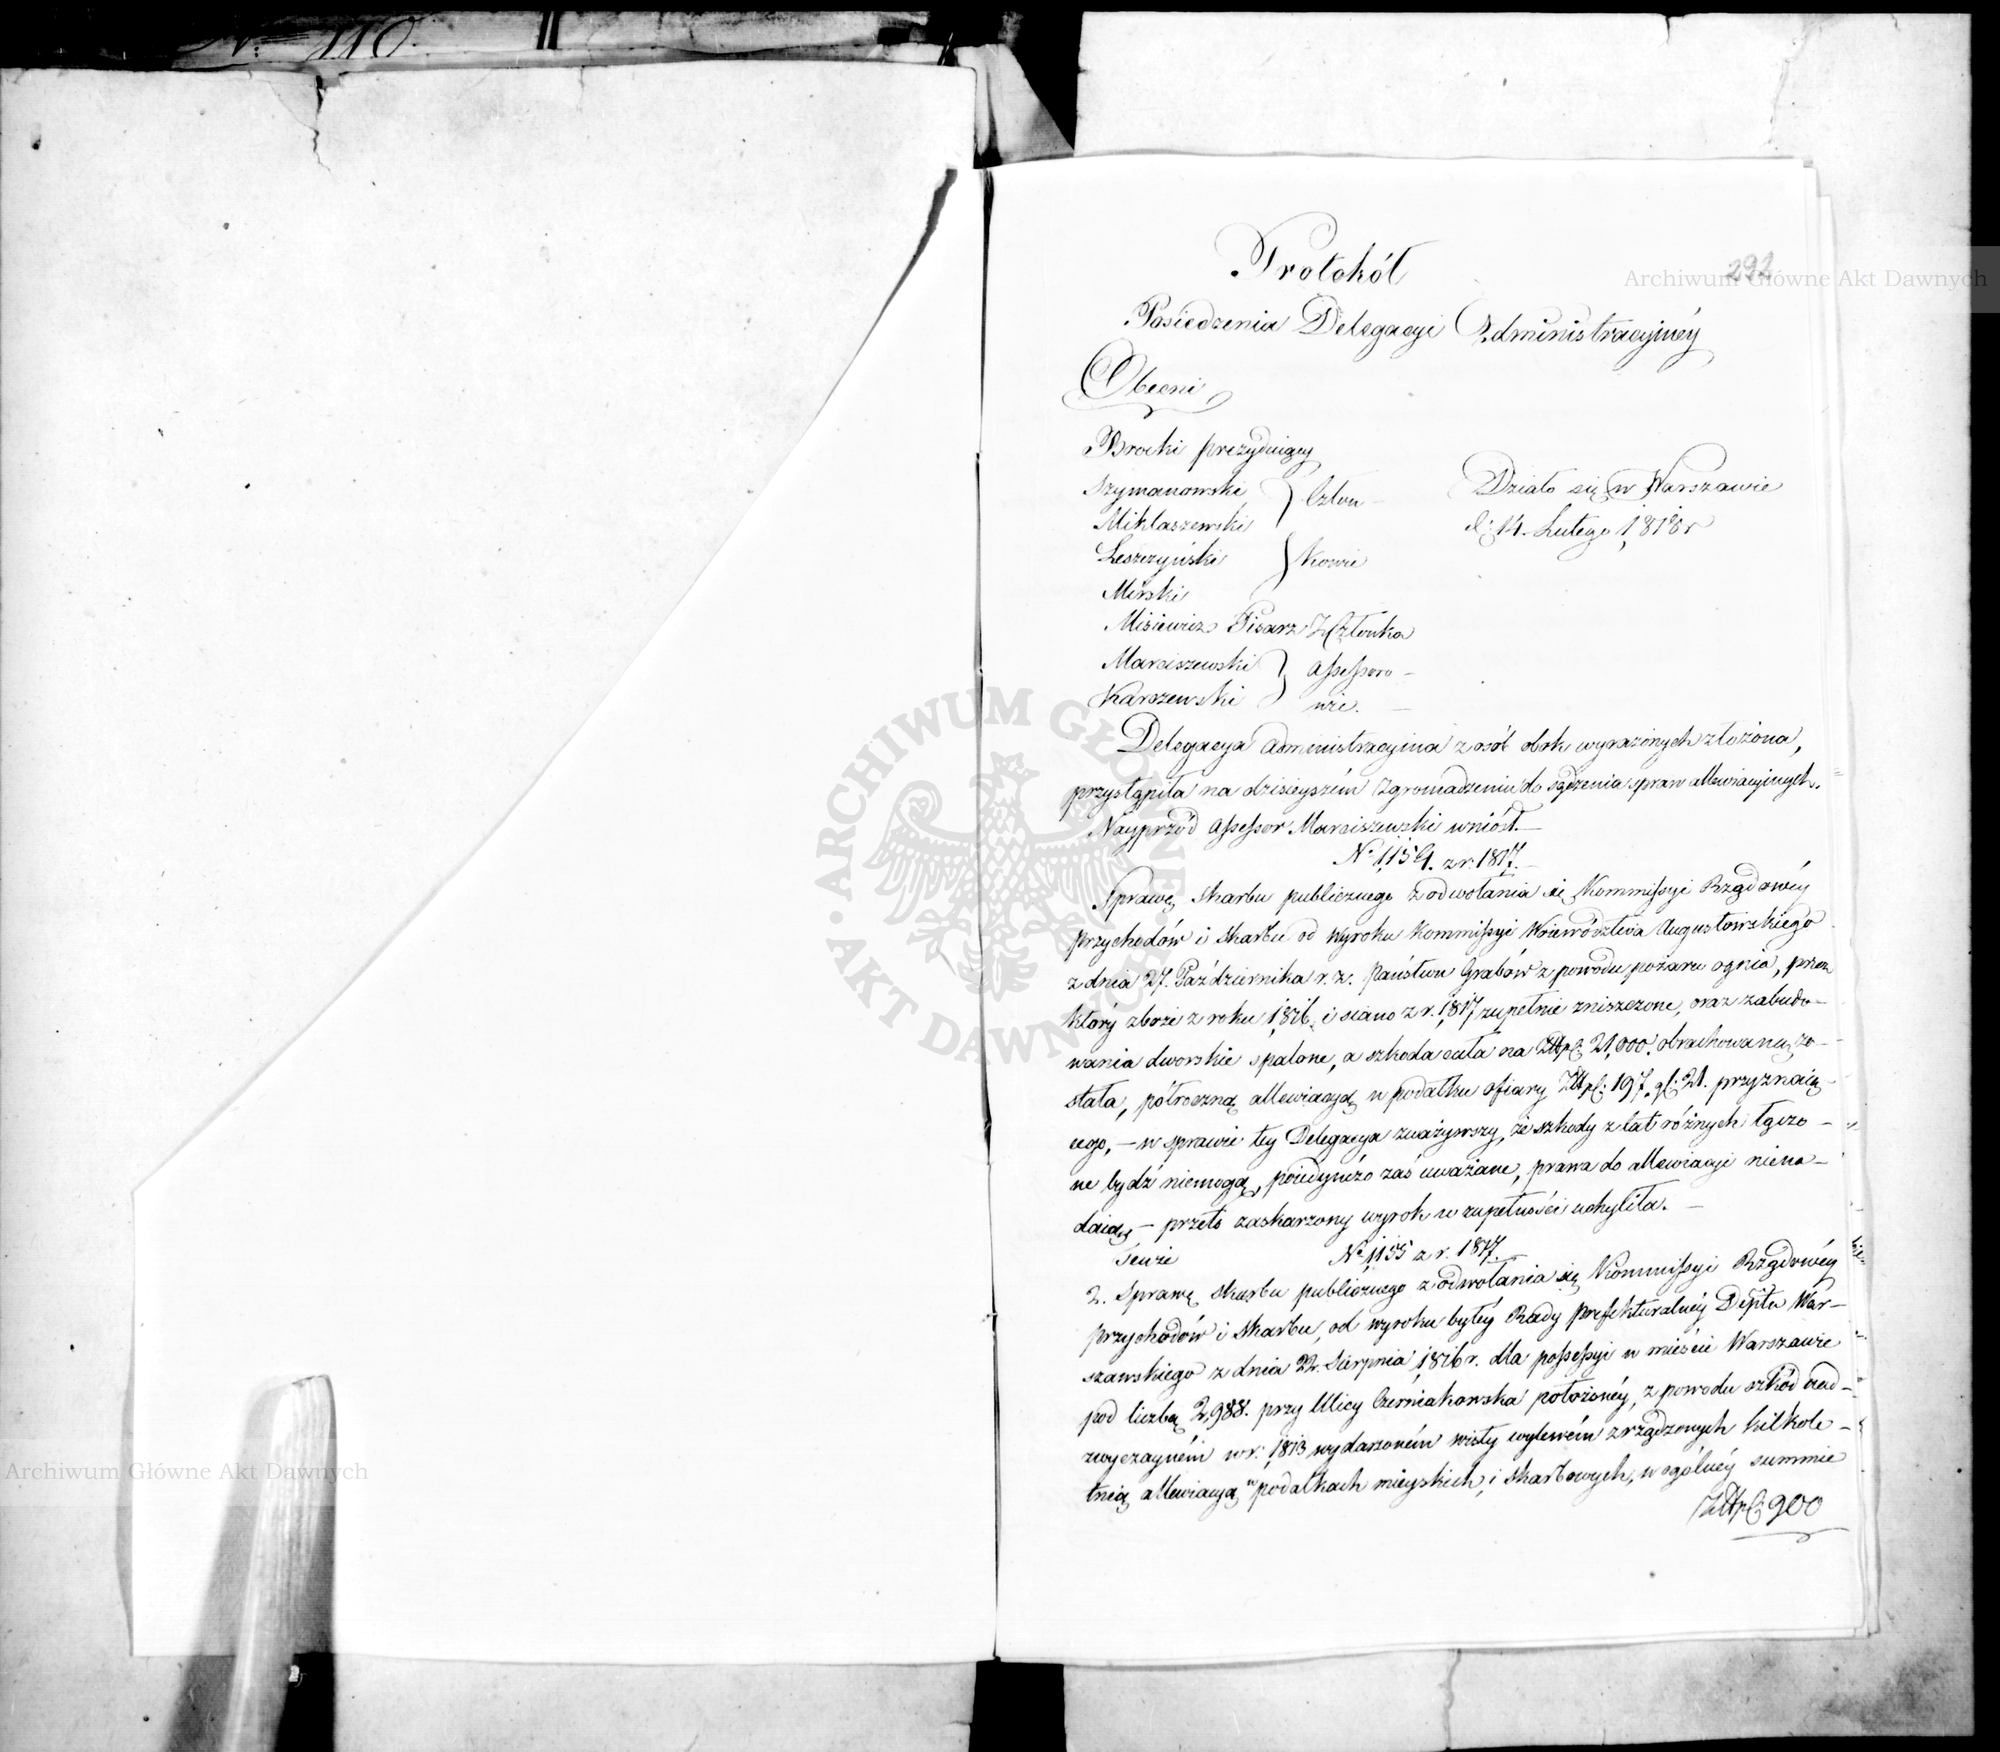 No 110.
292
Protokół
Posiedzenia Delegacyi Administracyjnéy
Obecni
Brocki prezyduiący
Szymanowski } Człon-
Mikłaszewski
Leszczyński } kowie
Mirski
Misiewicz Pisarz Z. Członka
Marciszewski } assessoro-
Karszewski wie.
Działo się w Warszawie
d: 14. Lutego 1818 r
Delegacya administracyina z osób obok wyrażonych złożona,
przystąpiła na dzisieyszém zgromadzeniu do sądzenia spraw allewiacyinych.
Nayprzód assessor Marciszewski wniósł.—
No 1154. z r. 1817.
Sprawę skarbu publicznego z odwołania się Kommissyi Rządowéy
przychodów i skarbu od wyroku Kommissyi Woiewództwa Augustowskiego
z dnia 27. Października r. z. państwu Grabów z powodu pożaru ognia, przez
który zboże z roku 1816. i siano z r. 1817 zupełnie zniszczone, oraz zabudo-
wania dworskie spalone, a szkoda cała na Złtpl: 21,000. obrachowaną zo-
stała, półroczną allewiacyą w podatku ofiary Złtpl: 197. gl: 21. przyznaią-
cego, — w sprawie tey Delegacya zważywszy, że szkody z lat różnych łączo-
ne bydź niemogą, poiedyńczo zaś uważane, prawa do allewiacyi niena-
daią, — przeto zaskarżony wyrok w zupełności uchyliła. —
Tenże
No 1155 z r. 1817.
2. Sprawę skarbu publicznego z odwołania się Kommissyi Rządowéy
przychodów i skarbu, od wyroku byłéy Rady prefekturalnéy Deptu War-
szawskiego z dnia 22. Sierpnia 1816 r. dla possessyi w mieście Warszawie
pod liczbą 2,988. przy Ulicy Czerniakowska położonéy, z powodu szkód nad-
zwyczayném w r. 1813 wydarzoném wisły wylewém zrządzonych kilkole-
tnią allewiacyą w podatkach mieyskich, i skarbowych, w ogólnéy summie
Złtpl: 900
Archiwum Główne Akt Dawnych
Archiwum Główne Akt Dawnych
ARCHIWUM GŁÓWNE AKT DAWNYCH